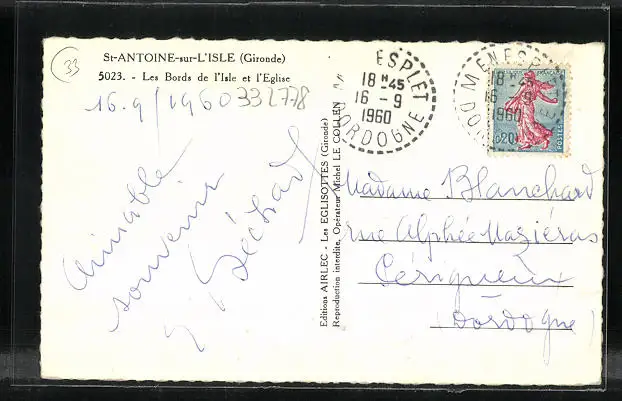 33
St-ANTOINE-sur-L'ISLE (Gironde)
5023. - Les Bords de l'Isle et l'Eglise
16.9/1960
332778
Aimable
souvenir
G Béchard
Editions AIRLEC - Les EGLISOTTES (Gironde)
Reproduction interdite. Opérateur Michel LE COLLEN
ESPLET
18 H 45
16 - 9
1960
DORDOGNE
MENESP
18 -
16 - 9
1960
DO
0,20
POSTES
Madame Blanchard
rue Alphée Maziéras
Périgueux
(Dordogne)